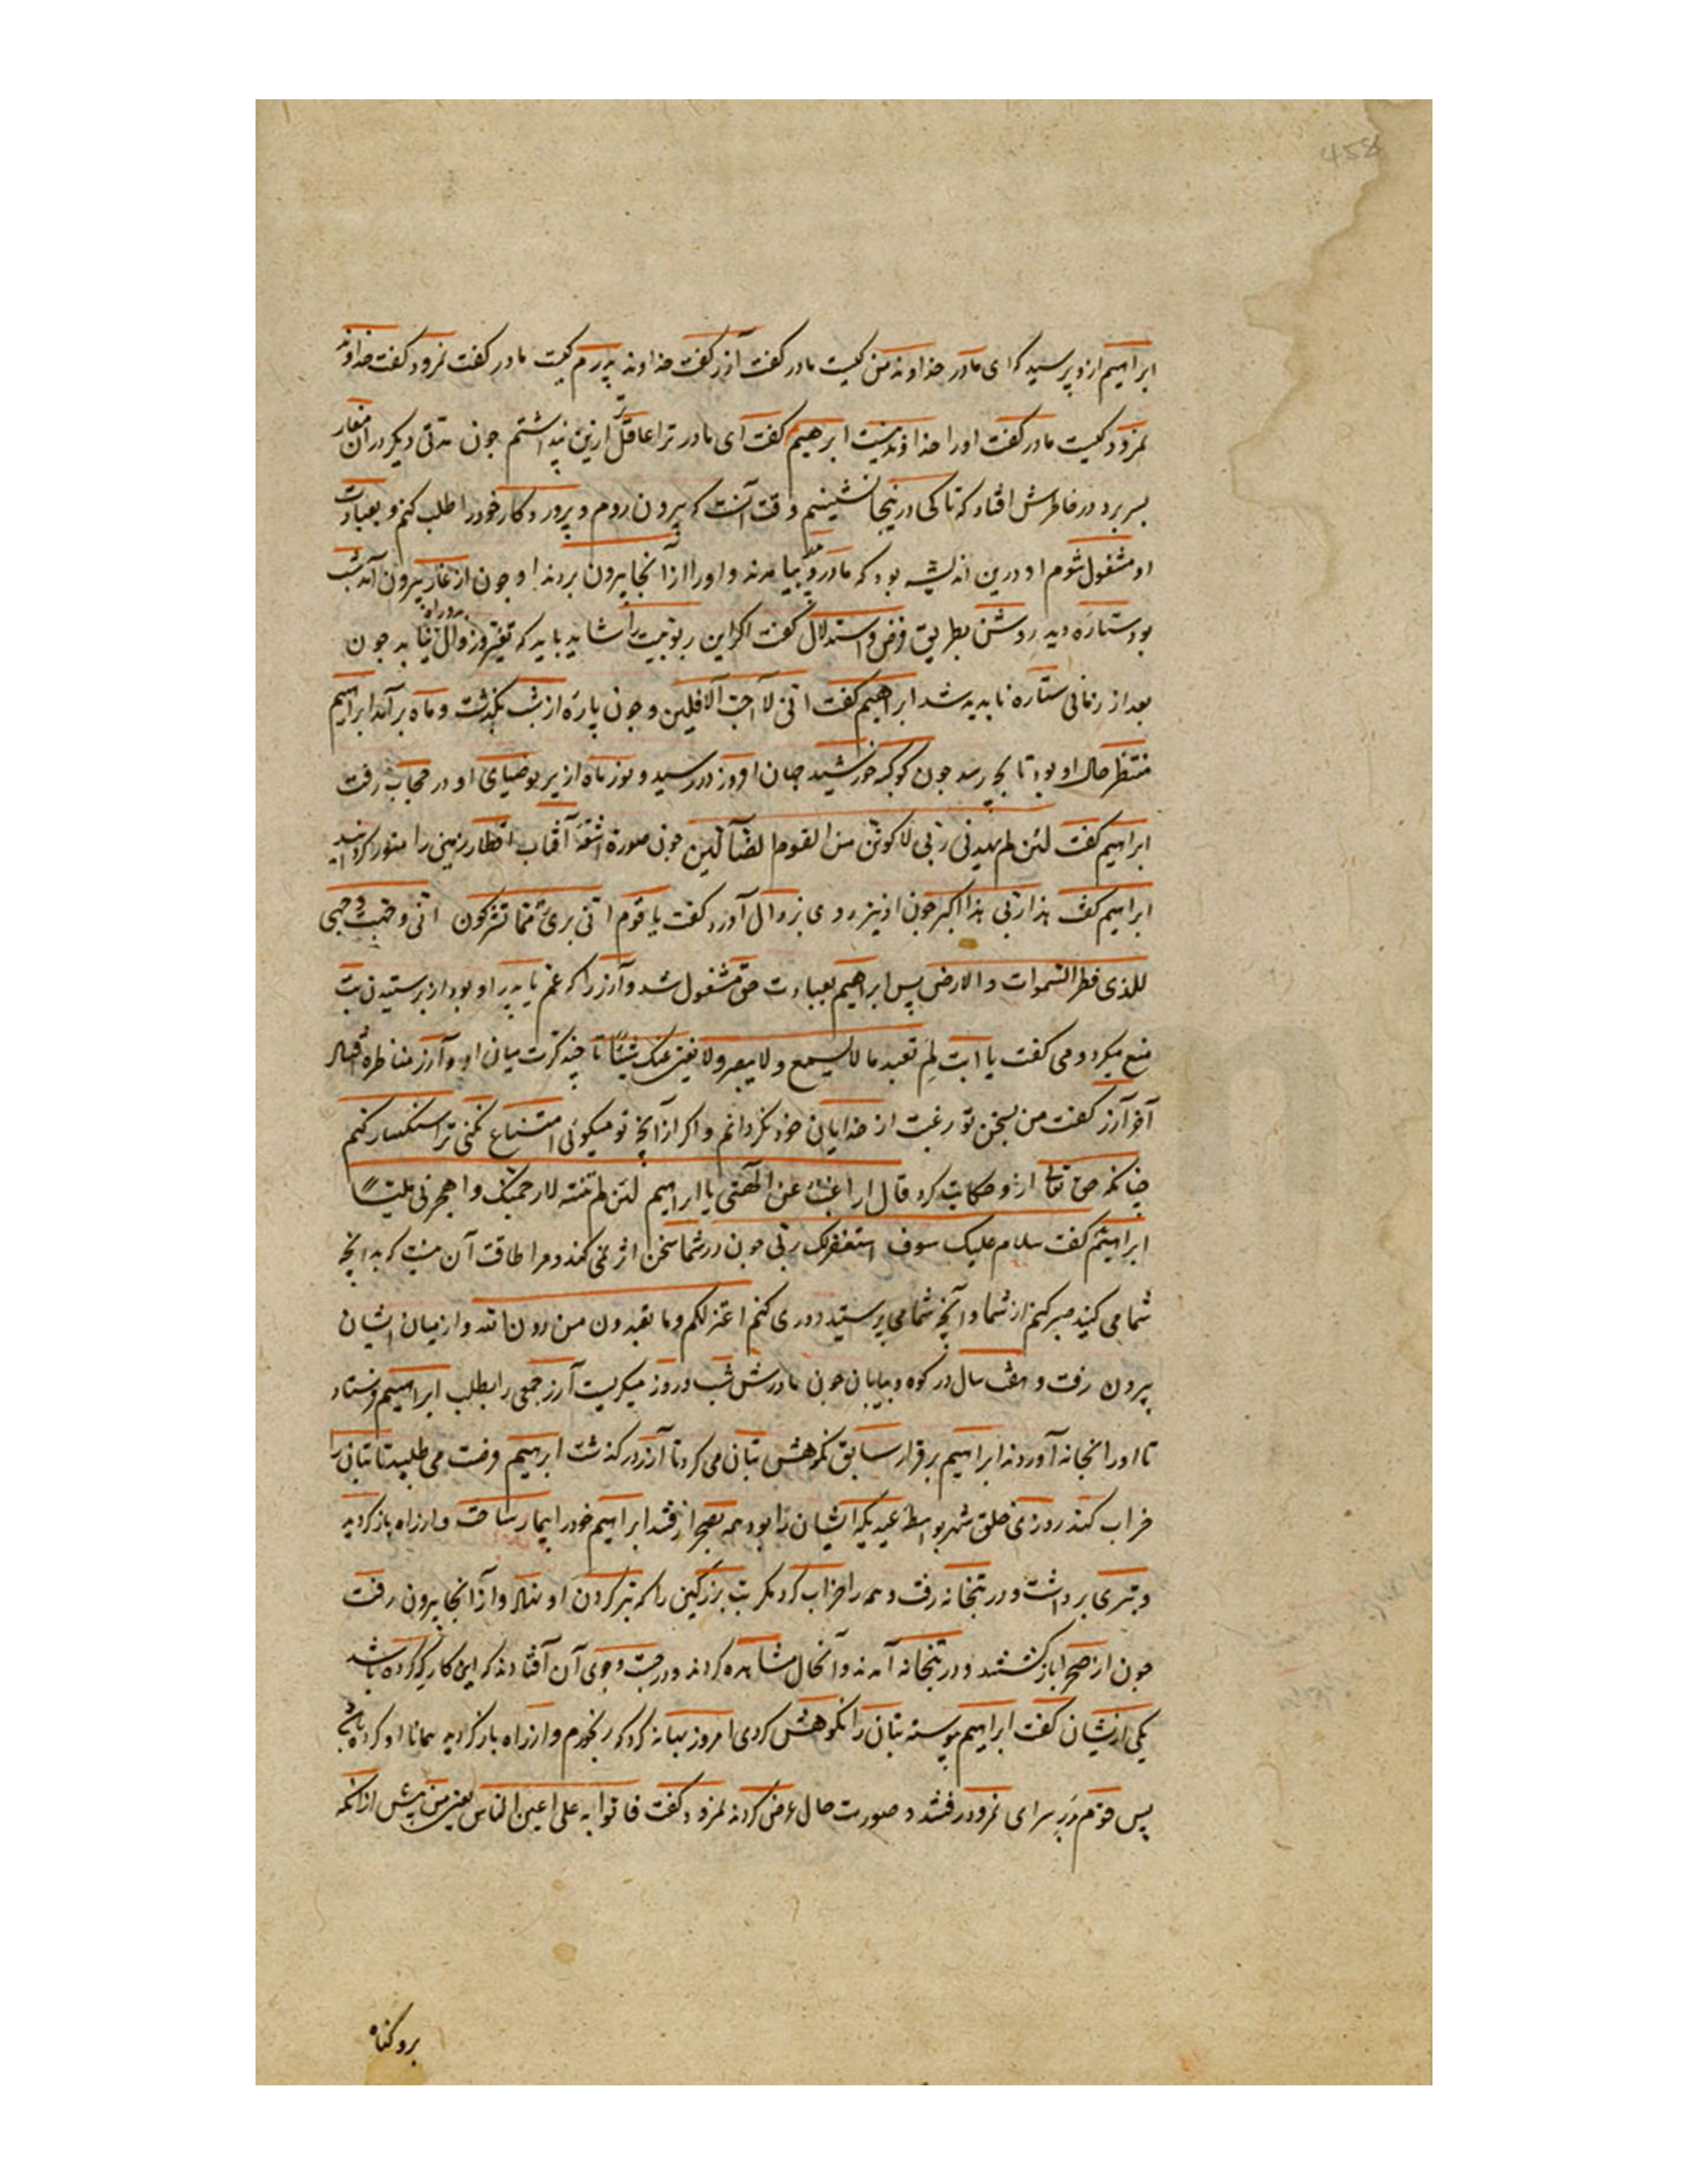 458
ابراهیم ازو پرسید که ای مادر خداوند من کیست مادر گفت آزر گفت خداوند پدرم کیست مادر گفت نمرود گفت خداوند
نمرود کیست مادر گفت اورا خداوند نیست ابرهیم گفت ای مادر ترا عاقل تر ازین پنداشتم چون مدتی دیکر دران مغار
بسر برد در خاطرش افتاد که تا کی درینجا نشینم وقت آنست که بیرون روم و پرورد کار خودرا طلب کنم و بعبادت
او مشغول شوم او درین اندیشه بود که مادر و پدر بیامدند و اورا از آنجا بیرون بردند و چون از غار بیرون آمد شب
بود ستاره دید روشن بطریق فرض و استدلال گفت اکر این ربوبیت را شاید باید که تغیر و زوال بدو راه نیابد چون
بعد از زمانی ستاره ناپدید شد ابراهیم گفت انی لا احب الآفلین و چون پاره از شب بگذشت و ماه برآمد ابراهیم
منتظر حال او بود تا بچه رسد چون کوکبه خورشید جهان افروز در رسید و نور ماه از پرتو ضیای او در حجاب رفت
ابراهیم گفت لئن لم یهدنی ربی لاکونن من القوم الضآلین چون صورة اشعهٔ آفتاب اقطار زمین را منور کردانید
ابراهیم گفت هذا ربی هذا اکبر چون او نیز روی بزوال آورد گفت یا قوم انی بریٔ مما تشرکون انی وجهت وجهی
للذی فطر السموات والارض پس ابراهیم بعبادت حق مشغول شد و آزر را که عم یا پدر او بود از پرستیدن بت
منع میکرد و می گفت یا ابت لم تعبد ما لا یسمع ولا یبصر ولا یغنی عنک شیئا تا چند کرت میان او و آزر مناظره
آخر آزر گفت من بسخن تو رغبت از خدایان خود نکردانم و اکر از آنچه تو میکوئی امتناع نکنی ترا سنکسار کنم
چنانکه حق تعالی ازو حکایت کرد قال اراغب انت عن الهتی یا ابراهیم لئن لم تنته لارجمنک واهجرنی ملیا
ابراهیم گفت سلام علیک سوف استغفرلک ربی چون در شما سخن اثر نمی کند و مرا طاقت آن نیست که بدانچه
شما می کنید صبر کنم از شما و آنچه شما می پرستید دوری کنم اعتزلکم وما تعبدون من دون الله و از میان ایشان
بیرون رفت و هفت سال در کوه و بیابان چون مادرش شب و روز میکریست آزر جمعی را بطلب ابراهیم فرستاد
تا اورا بخانه آوردند ابراهیم برقرار سابق نکوهش بتان می کرد تا آزر درکذشت ابرهیم فرصت می طلبید تا بتان را
خراب کند روزی خلق شهر بواسطهٔ عیدیکه ایشان را بود همه بصحرا رفتند ابراهیم خودرا بیمار ساخت و از راه باز کردید
و تبری برداشت و در بتخانه رفت و همه را خراب کرد مکر بت بزرکین را که تبر بر کردن او نهاد و از آنجا بیرون رفت
چون از صحرا باز کشتند و در بتخانه آمدند و آنحال مشاهده کردند و در جست و جوی آن افتادند که این کار که کرده باشد
یکی ازیشان گفت ابراهیم پیوسته بتان را نکوهش کردی امروز بهانه کرد که رنجورم و از راه باز کردید همانا او کرده باشد
پس قوم بر در سرای نمرود رفتند و صورت حال عرض کردند نمرود گفت فاتوا به علی اعین الناس یعنی من پیش ازانکه
برو کناه